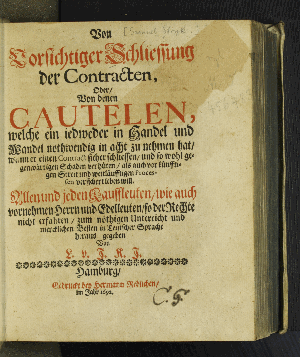 Von
Vorsichtiger Schliessung
der Contracten,
Oder/
Von denen
CAUTELEN,
welche ein iedweder in Handel und
Wandel nothwendig in acht zu nehmen hat/
wann er einen Contract sicher schliessen/ und so wohl ge-
genwärtigen Schaden verhüten/ als auch vor künffti-
gen Streit und weitläufftigen Proces-
sen versichert leben will.
Allen und jeden Kauffleuten/ wie auch
vornehmen Herrn und Edelleuten/ so der Rechte
nicht erfahren/ zum nöthigen Unterricht und
mercklichen Besten in Teutscher Sprache
heraus gegeben
Von
L. v. J. K. J.
Hamburg/
Gedruckt bey Hermann
im Jahr
C. F.